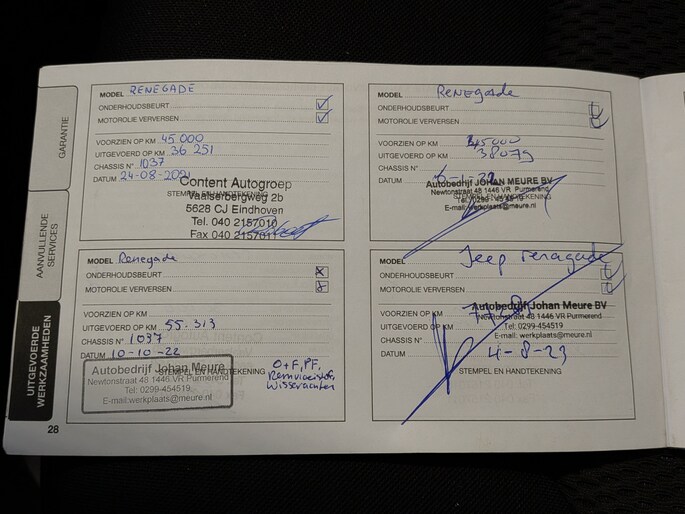 GARANTIE
AANVULLENDE
SERVICES
UITGEVOERDE
WERKZAAMHEDEN
28
MODEL RENEGADE
ONDERHOUDSBEURT
MOTOROLIE VERVERSEN
VOORZIEN OP KM 45.000
UITGEVOERD OP KM 36 251
CHASSIS N° 1037
DATUM 24-08-2021
STEMPEL EN HANDTEKENING
Content Autogroep
Vaalserbergweg 2b
5628 CJ Eindhoven
Tel. 040 2157010
Fax 040 2157011
MODEL Renegade
ONDERHOUDSBEURT
MOTOROLIE VERVERSEN
VOORZIEN OP KM 45000
UITGEVOERD OP KM 38079
CHASSIS N°
DATUM
Autobedrijf JOHAN MEURE BV
Newtonstraat 48 1446 VR Purmerend
STEMPEL EN HANDTEKENING
E-mail: werkplaats@meure.nl
MODEL Renegade
ONDERHOUDSBEURT
MOTOROLIE VERVERSEN
VOORZIEN OP KM
UITGEVOERD OP KM 55.313
CHASSIS N° 1037
DATUM 10-10-22
STEMPEL EN HANDTEKENING
Autobedrijf Johan Meure
Newtonstraat 48 1446 VR Purmerend
Tel: 0299-454519
E-mail:werkplaats@meure.nl
O+F, PF,
Remvloeistof,
Wisserachter
MODEL Jeep renagade
ONDERHOUDSBEURT
MOTOROLIE VERVERSEN
VOORZIEN OP KM
UITGEVOERD OP KM
CHASSIS N°
DATUM 4-8-23
Autobedrijf Johan Meure BV
Newtonstraat 48 1446 VR Purmerend
Tel: 0299-454519
E-mail: werkplaats@meure.nl
STEMPEL EN HANDTEKENING